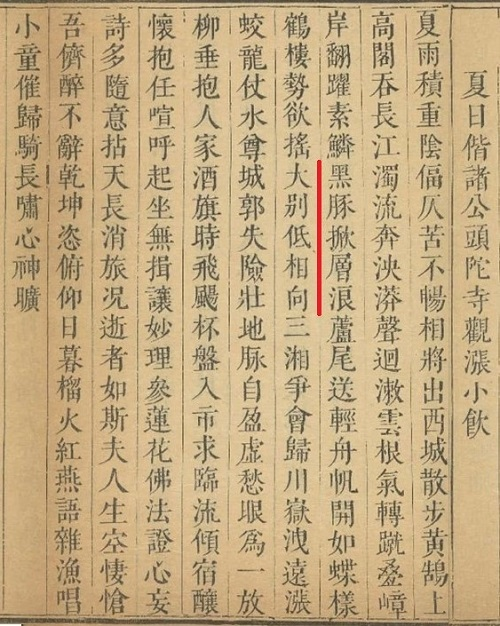 夏日偕諸公頭陀寺觀漲小飲
夏雨積重陰偪仄苦不暢相將出西城散步黄鵠上
高閣吞長江濁流奔泱漭聲迴漱雲根氣轉蹴叠嶂
岸翻躍素鱗黑豚掀層浪蘆尾送輕舟帆開如蝶樣
鶴樓勢欲搖大别低相向三湘爭會歸川嶽洩遠漲
蛟龍仗水尊城郭失險壯地脉自盈虛愁眼爲一放
柳垂抱人家酒旗時飛颺杯盤入市求臨流傾宿釀
懷抱任喧呼起坐無揖讓妙理參蓮花佛法證心妄
詩多隨意拈天長消旅况逝者如斯夫人生空悽愴
吾儕醉不辭乾坤恣俯仰日暮榴火紅燕語雜漁唱
小童催歸騎長嘯心神曠